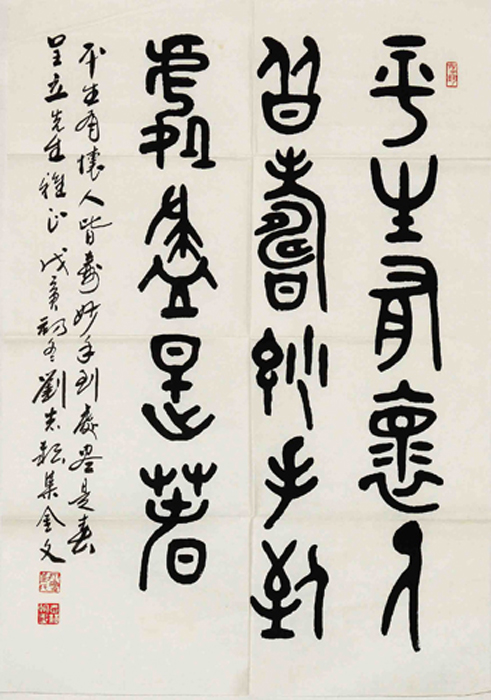 平生有懷人
皆壽妙手到
處盡是春
平生有懷人皆壽妙手到處盡是春
呈立先生雅正 戊寅初冬劉志耘集金文